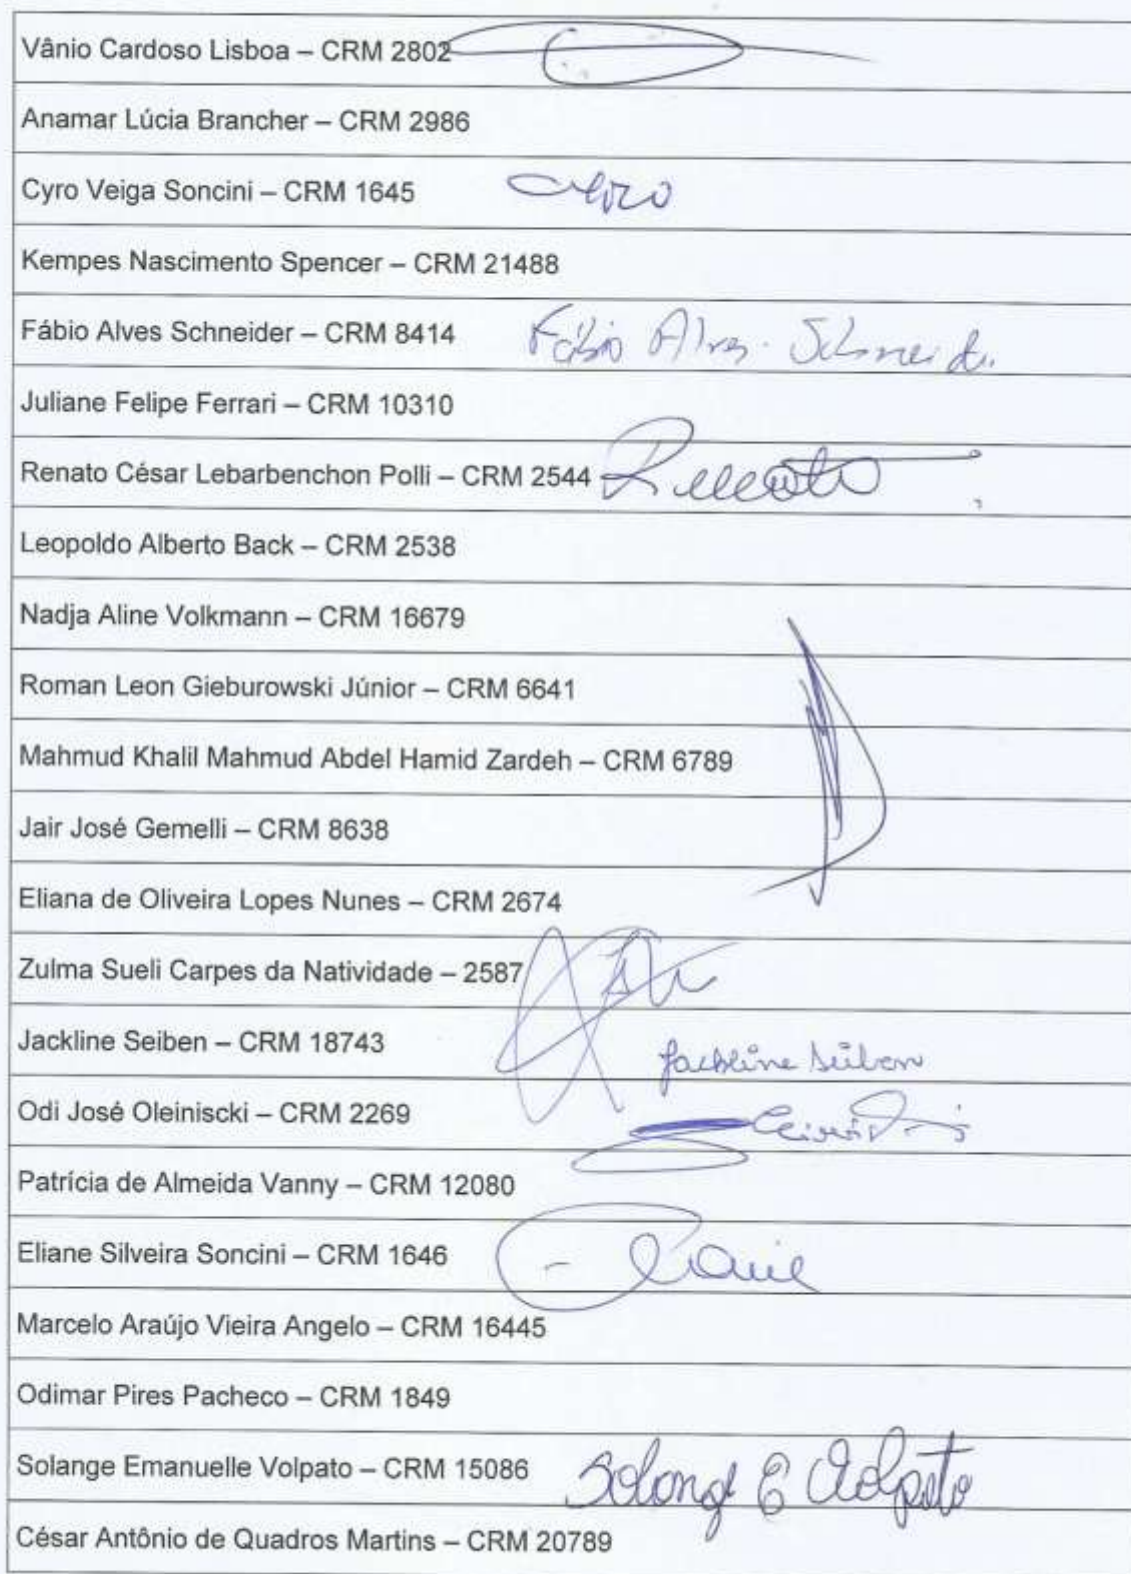 Vânio Cardoso Lisboa – CRM 2802
Anamar Lúcia Brancher – CRM 2986
Cyro Veiga Soncini – CRM 1645
Kempes Nascimento Spencer – CRM 21488
Fábio Alves Schneider – CRM 8414 Fábio Alves Schneider
Juliane Felipe Ferrari – CRM 10310
Renato César Lebarbenchon Polli – CRM 2544 Renato
Leopoldo Alberto Back – CRM 2538
Nadja Aline Volkmann – CRM 16679
Roman Leon Gieburowski Júnior – CRM 6641
Mahmud Khalil Mahmud Abdel Hamid Zardeh – CRM 6789
Jair José Gemelli – CRM 8638
Eliana de Oliveira Lopes Nunes – CRM 2674
Zulma Sueli Carpes da Natividade – 2587
Jackline Seiben – CRM 18743 Jackline Seiben
Odi José Oleiniscki – CRM 2269
Patrícia de Almeida Vanny – CRM 12080
Eliane Silveira Soncini – CRM 1646
Marcelo Araújo Vieira Angelo – CRM 16445
Odimar Pires Pacheco – CRM 1849
Solange Emanuelle Volpato – CRM 15086 Solange E Volpato
César Antônio de Quadros Martins – CRM 20789